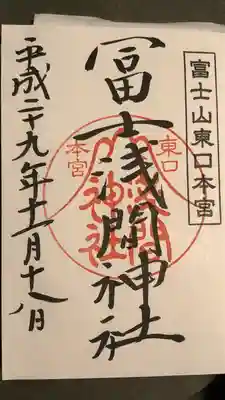 富士山東口本宮
冨士浅間神社
東口
本宮
浅間
神社
平成二十九年十一月十八日